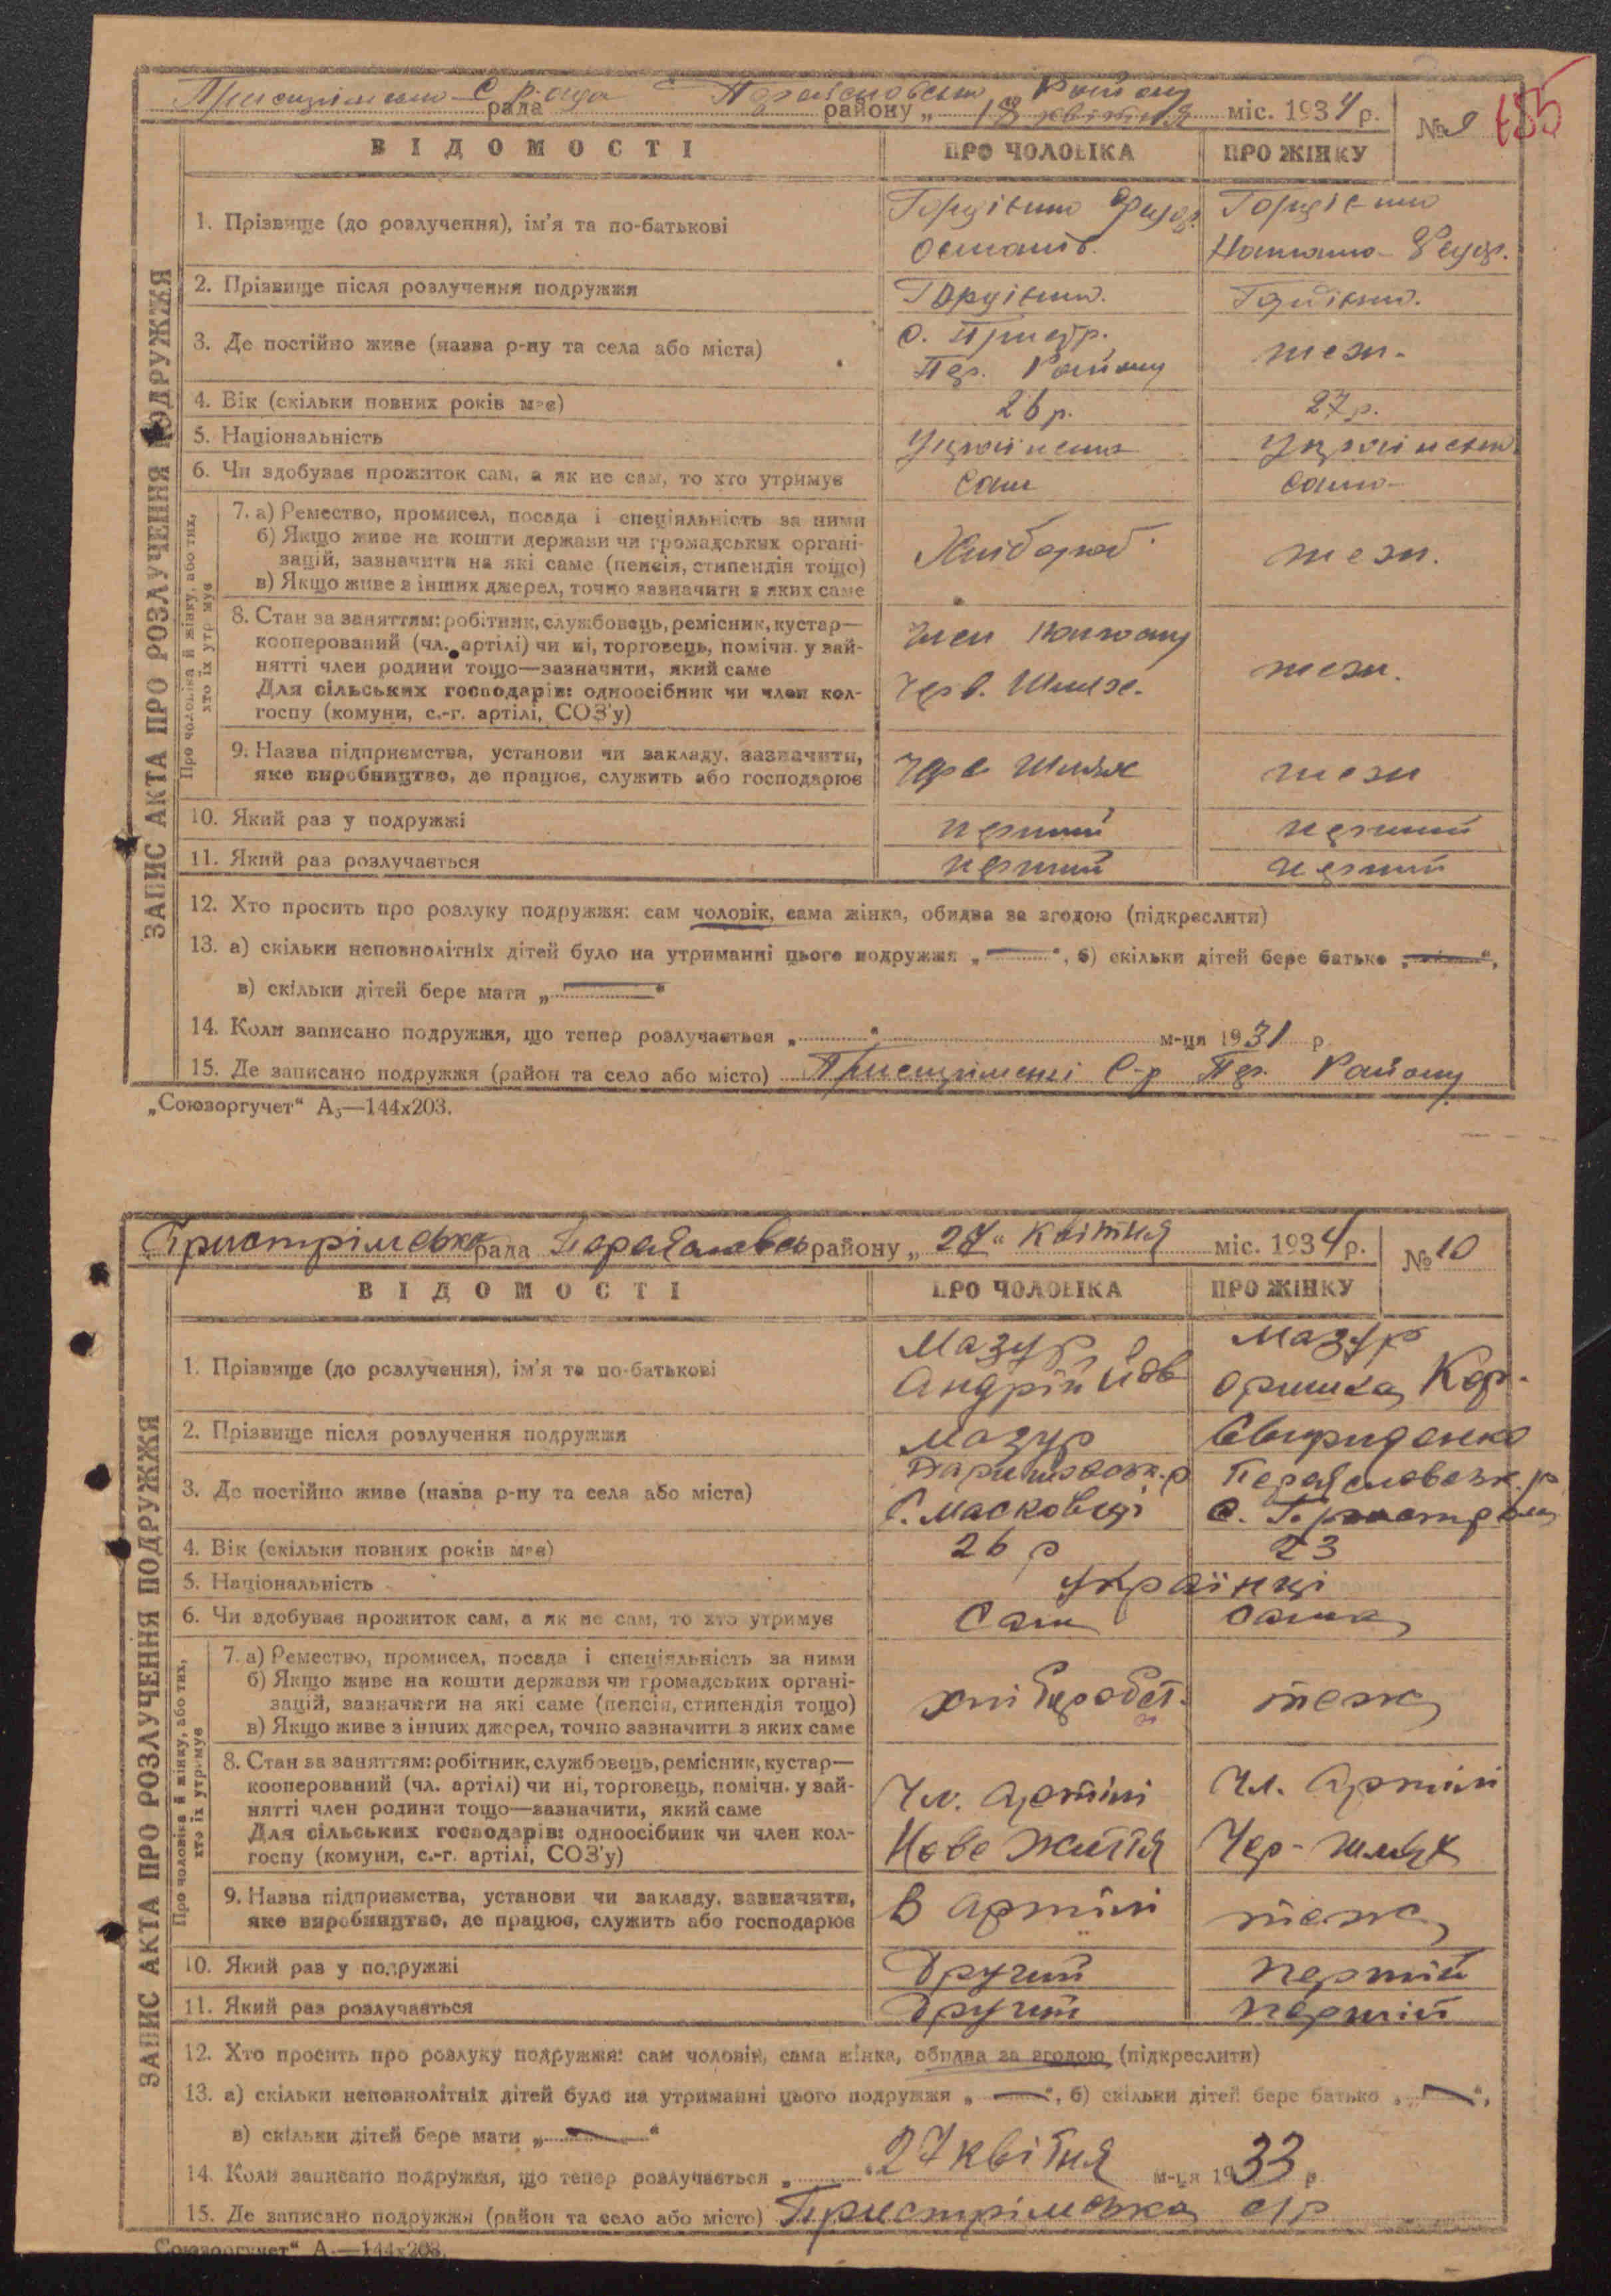 Пристрімська С. рада Переяславськ. Району
рада району „18 квітня міс. 1934 р. № 9 155
ВІДОМОСТІ ПРО ЧОЛОВІКА ПРО ЖІНКУ
ЗАПИС АКТА ПРО РОЗЛУЧЕННЯ ПОДРУЖЖЯ
1. Прізвище (до розлучення), ім'я та по-батькові
2. Прізвище після розлучення подружжя
3. Де постійно живе (назва р-ну та села або міста) с. Пристр. теж.
Пер. Району
4. Вік (скільки повних років має) 26 р. 27 р.
5. Національність
6. Чи здобуває прожиток сам, а як не сам, то хто утримує сам сама
Про чоловіка й жінку, або тих,
хто їх утримує
7. а) Ремество, промисел, посада і спеціяльність за ними
б) Якщо живе на кошти держави чи громадських органі-
зацій, зазначити на які саме (пенсія, стипендія тощо) Хлібороб теж.
в) Якщо живе з інших джерел, точно зазначити з яких саме
8. Стан за заняттям: робітник, службовець, ремісник, кустар—
кооперований (чл. артілі) чи ні, торговець, помічн. у зай-
нятті член родини тощо—зазначити, який саме теж.
Для сільських господарів: одноосібник чи член кол- Черв. Шлях.
госпу (комуни, с.-г. артілі, СОЗ'у)
9. Назва підприємства, установи чи закладу, зазначити,
яке виробництво, де працює, служить або господарює Черв. Шлях теж
10. Який раз у подружжі перший перший
11. Який раз розлучається перший перший
12. Хто просить про розлуку подружжя: сам чоловік, сама жінка, обидва за згодою (підкреслити)
13. а) скільки неповнолітніх дітей було на утриманні цього подружжя „—“, б) скільки дітей бере батько „—“,
в) скільки дітей бере мати „—“
14. Коли записано подружжя, що тепер розлучається „ “ м-ця 1931 р.
15. Де записано подружжя (район та село або місто) Пристрімські С-р Пер. Району
„Союзоргучет“ А₅—144х203.
Пристрімська рада Переяславськ району „27“ квітня міс. 1934 р. № 10
ВІДОМОСТІ ПРО ЧОЛОВІКА ПРО ЖІНКУ
ЗАПИС АКТА ПРО РОЗЛУЧЕННЯ ПОДРУЖЖЯ
Мазур Мазур
1. Прізвище (до розлучення), ім'я та по-батькові Андрій Йов Оришка Кор.
2. Прізвище після розлучення подружжя Мазур Свириденко
Баришівськ. р Переяславськ. р
3. Де постійно живе (назва р-ну та села або міста) с. Масковці с. Пристроми
4. Вік (скільки повних років має) 26 р 23
5. Національність українці
6. Чи здобуває прожиток сам, а як не сам, то хто утримує сам сама
Про чоловіка й жінку, або тих,
хто їх утримує
7. а) Ремество, промисел, посада і спеціяльність за ними
б) Якщо живе на кошти держави чи громадських органі-
зацій, зазначити на які саме (пенсія, стипендія тощо) теж
в) Якщо живе з інших джерел, точно зазначити з яких саме
8. Стан за заняттям: робітник, службовець, ремісник, кустар—
кооперований (чл. артілі) чи ні, торговець, помічн. у зай- Чл. артілі Чл. артілі
нятті член родини тощо—зазначити, який саме
Для сільських господарів: одноосібник чи член кол- Нове Життя Чер- шлях
госпу (комуни, с.-г. артілі, СОЗ'у)
9. Назва підприємства, установи чи закладу, зазначити,
яке виробництво, де працює, служить або господарює В артілі теж
10. Який раз у подружжі Другий першій
11. Який раз розлучається Другий першій
12. Хто просить про розлуку подружжя: сам чоловік, сама жінка, обидва за згодою (підкреслити)
13. а) скільки неповнолітніх дітей було на утриманні цього подружжя „—“, б) скільки дітей бере батько „—“,
в) скільки дітей бере мати „—“
14. Коли записано подружжя, що тепер розлучається „ “ 27 квітня м-ця 1933 р.
15. Де записано подружжя (район та село або місто) Пристрімська с/р
„Союзоргучет“ А₅—144х203.